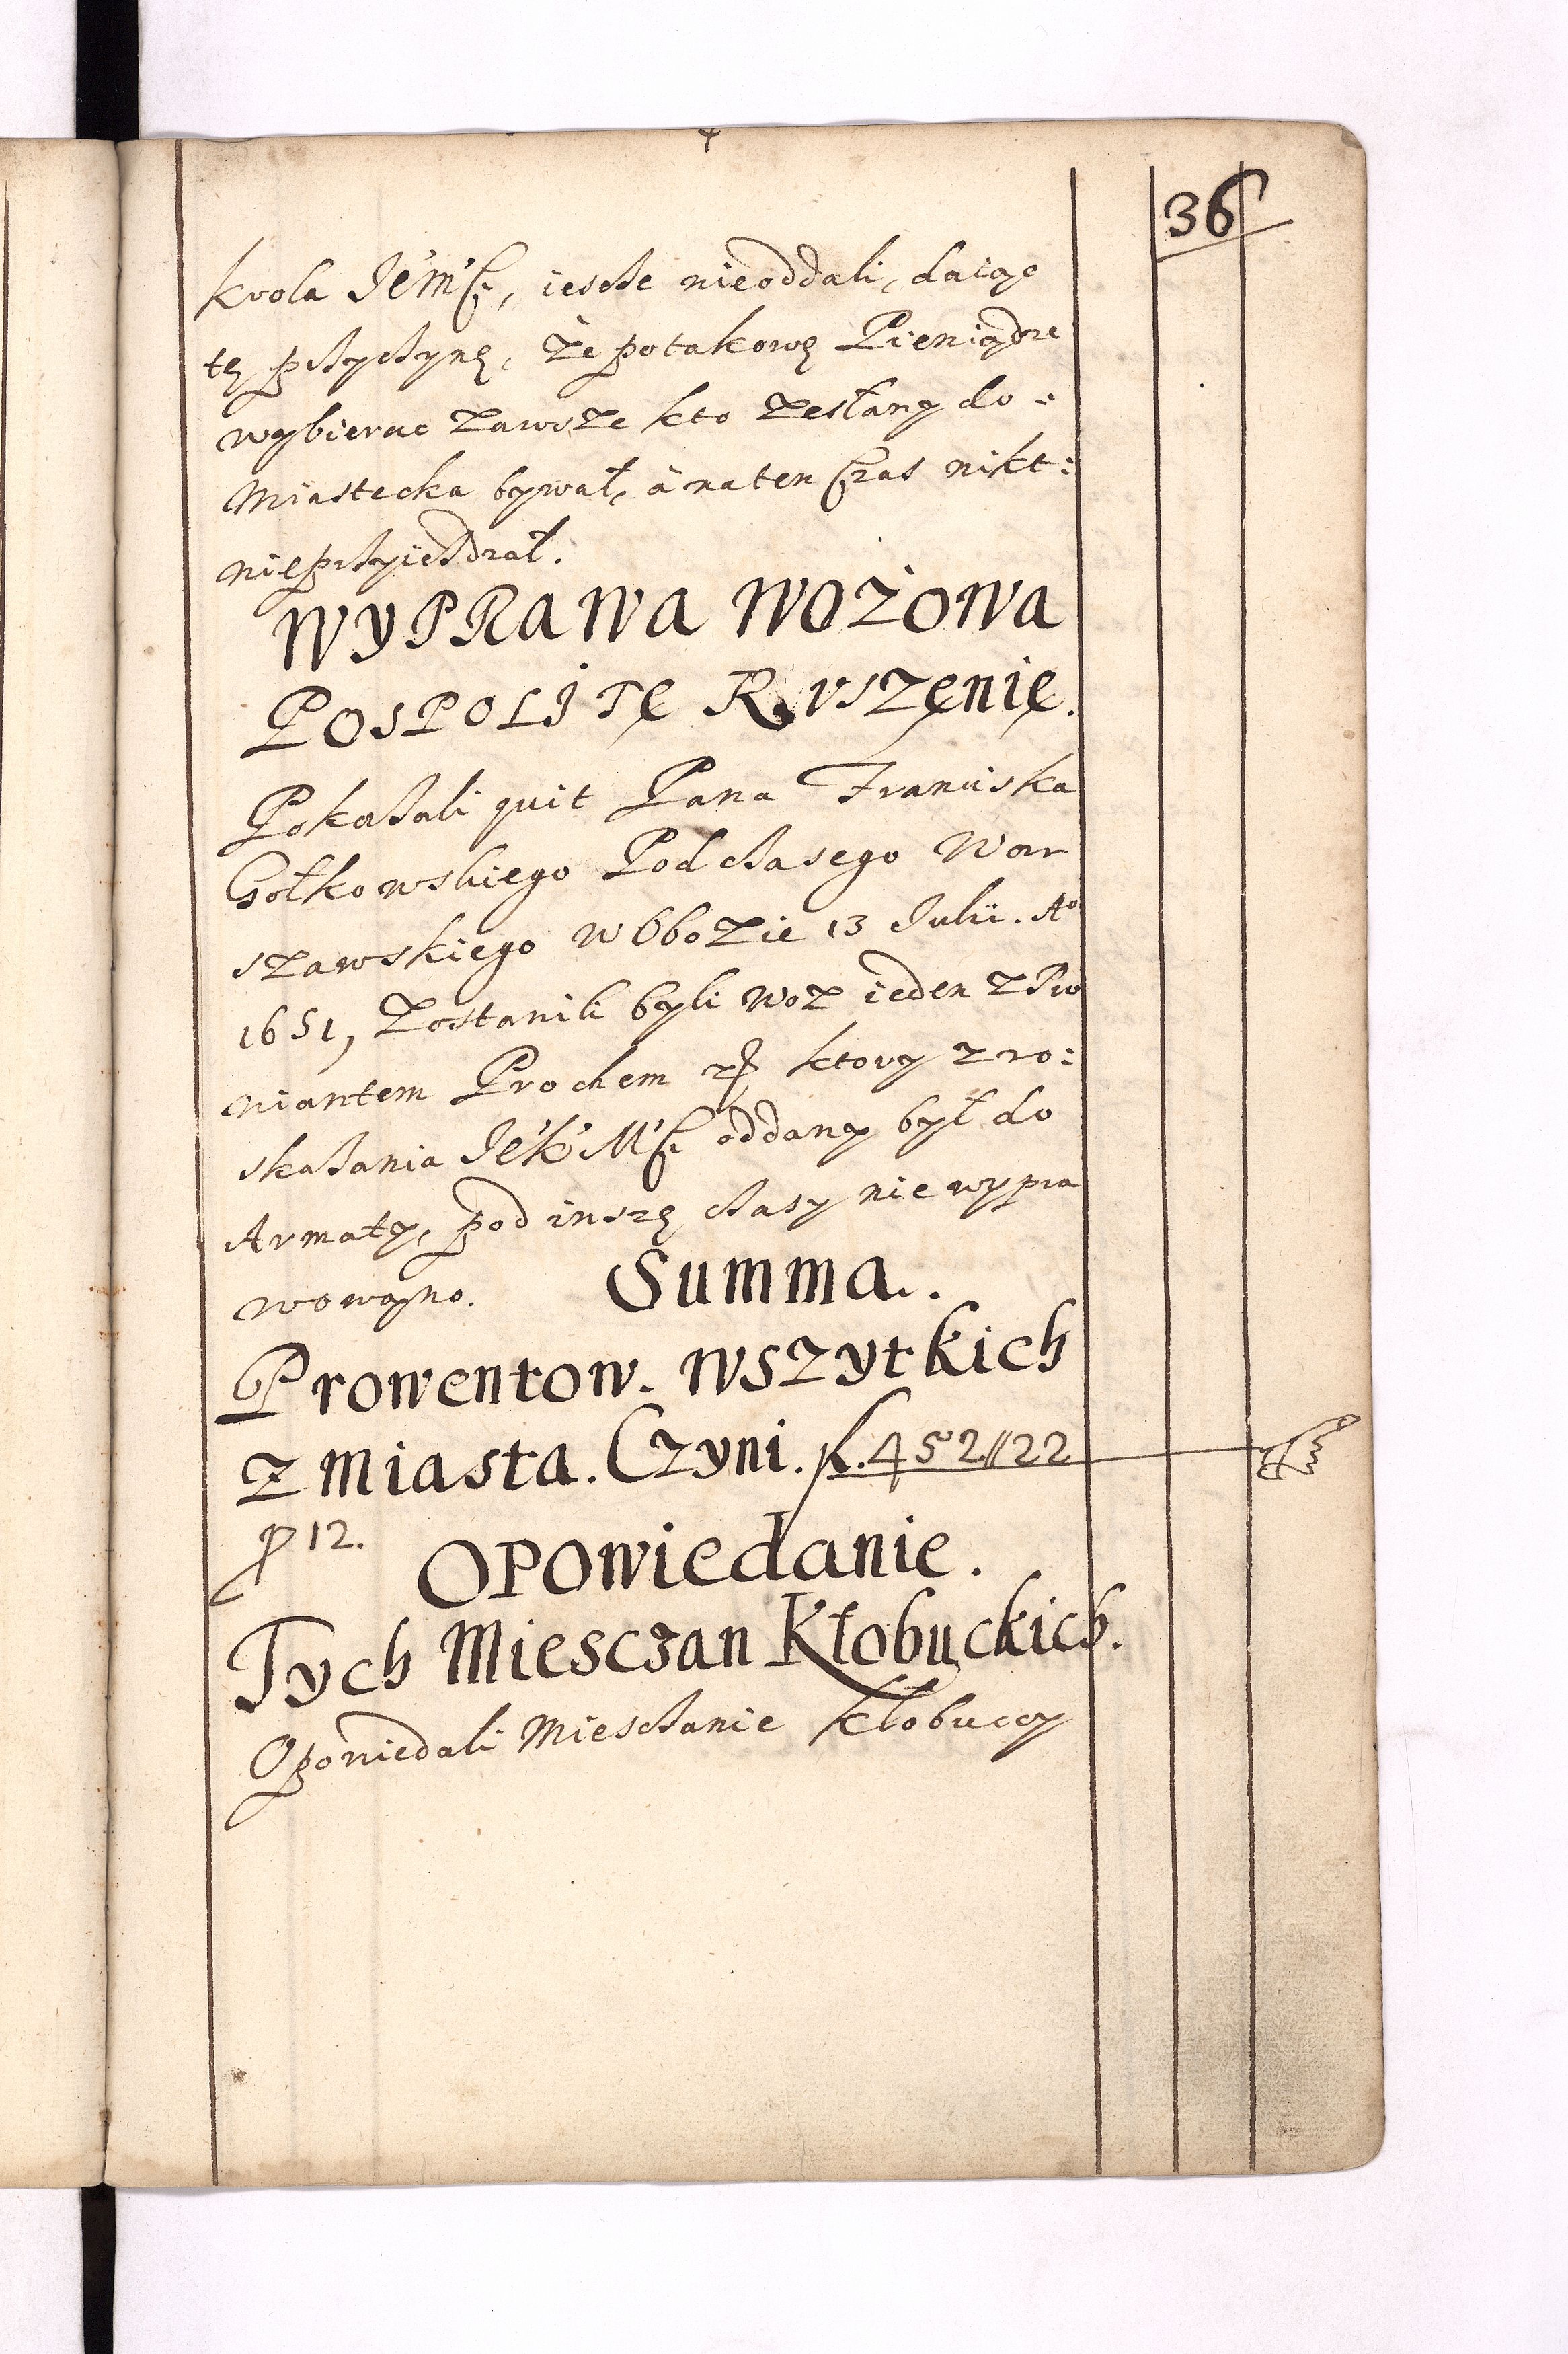 36
krola Je'm'sci, iescze nieoddali, daiąc
tę przyczynę, że potakowę Pieniądze
wybierac zawsze kto zesłany do =
Miastecka bywał, à naten Czas nikt:
nieprzyiezdzał.
WYPRAWA WOZOWA
POSPOLITE RVSZENIE.
Pokazali quit Pana Franciska
Gołkowskiego Podczasego War
szawskiego w Obozie 13 Julii. Ao
1651, Zostawili byli woz ieden z Pro
wiantem Prochem etc ktory z ro:
skazania Je'k'M'sci oddany był do
Armaty, pod inszę czasy nie wypra
wowano. Summa.
Prowentow. wszytkich
z miasta. Czyni. fl. 452//22
p 12.
OPOWiedanie.
Tych Miesczan Kłobuckich.
Opowiedali Miesczanie Kłobuccy